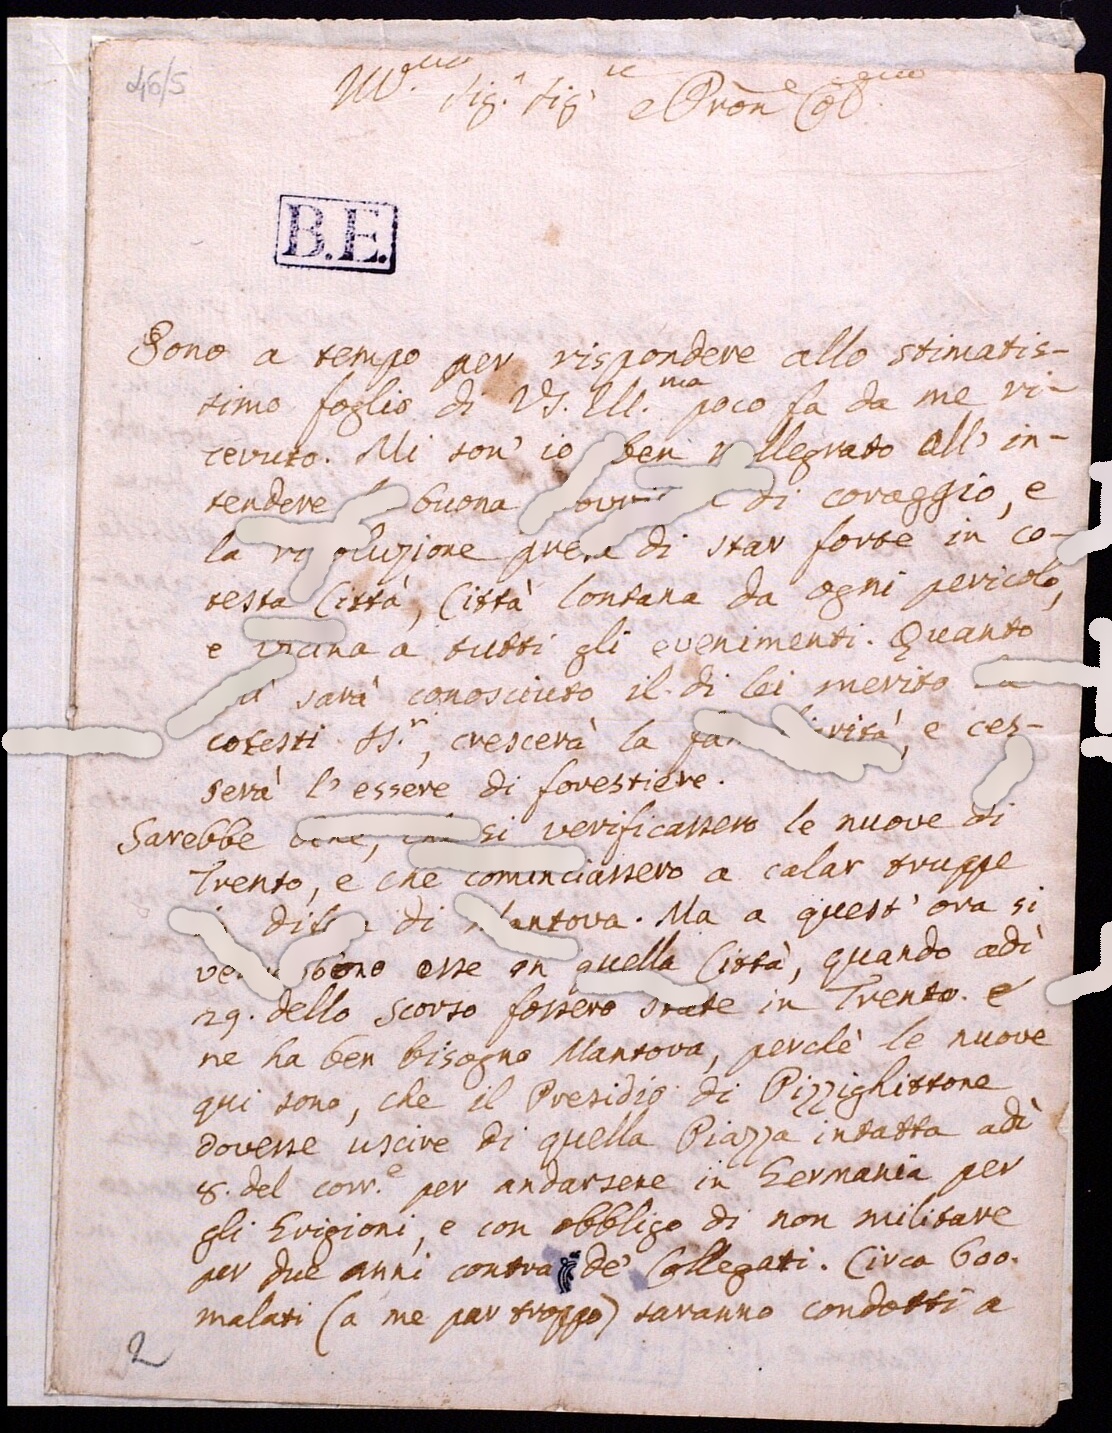 46/5
Ill.mo Sig.r Sig.r e Pron Col.mo
B.E.
Sono a tempo per rispondere allo stimatis-
simo foglio di VS. Ill.ma poco fa da me ri-
cevuto. Mi son' io ben rallegrato all' in-
tendere buona di coraggio, e
la risoluzione presa di star forte in co-
testa Città, Città lontana da ogni pericolo,
e vicina a tutti gli evenimenti. Quanto
sarà conosciuto il di lei merito da
cotesti SS.ri, crescerà la familiarità, e ces-
serà l' essere di forestiere.
Sarebbe bene, che si verificassero le nuove di
Trento, e che cominciassero a calar truppe
difesa di Mantova. Ma a quest' ora si
esse in quella Città, quando adì
29. dello scorso fossero state in Trento. E
ne ha ben bisogno Mantova, perchè le nuove
qui sono, che il Presidio di Pizzighittone
dovesse uscire di quella Piazza intatta adì
8. del corr.e per andarsene in Germania per
gli Grigioni, e con obbligo di non militare
per due anni contra de' Collegati. Circa 600.
malati (a me par troppo) saranno condotti a
2